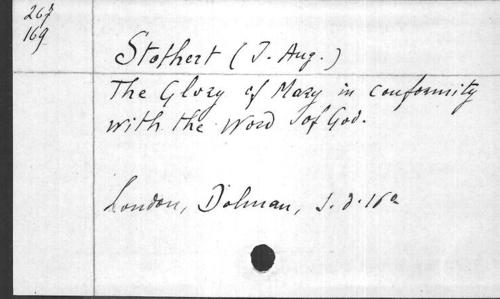 267
169
Stothert (J. Aug.)
The Glory of Mary in conformity
with the Word of God.
London, Dolman, s. d. 16°